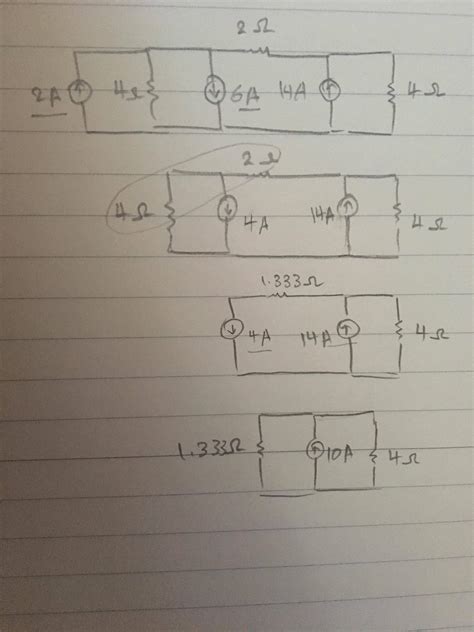 2Ω
2A 4Ω 6A 14A 4Ω
2Ω
4Ω 4A 14A 4Ω
1.333Ω
4A 14A 4Ω
1.333Ω 10A 4Ω